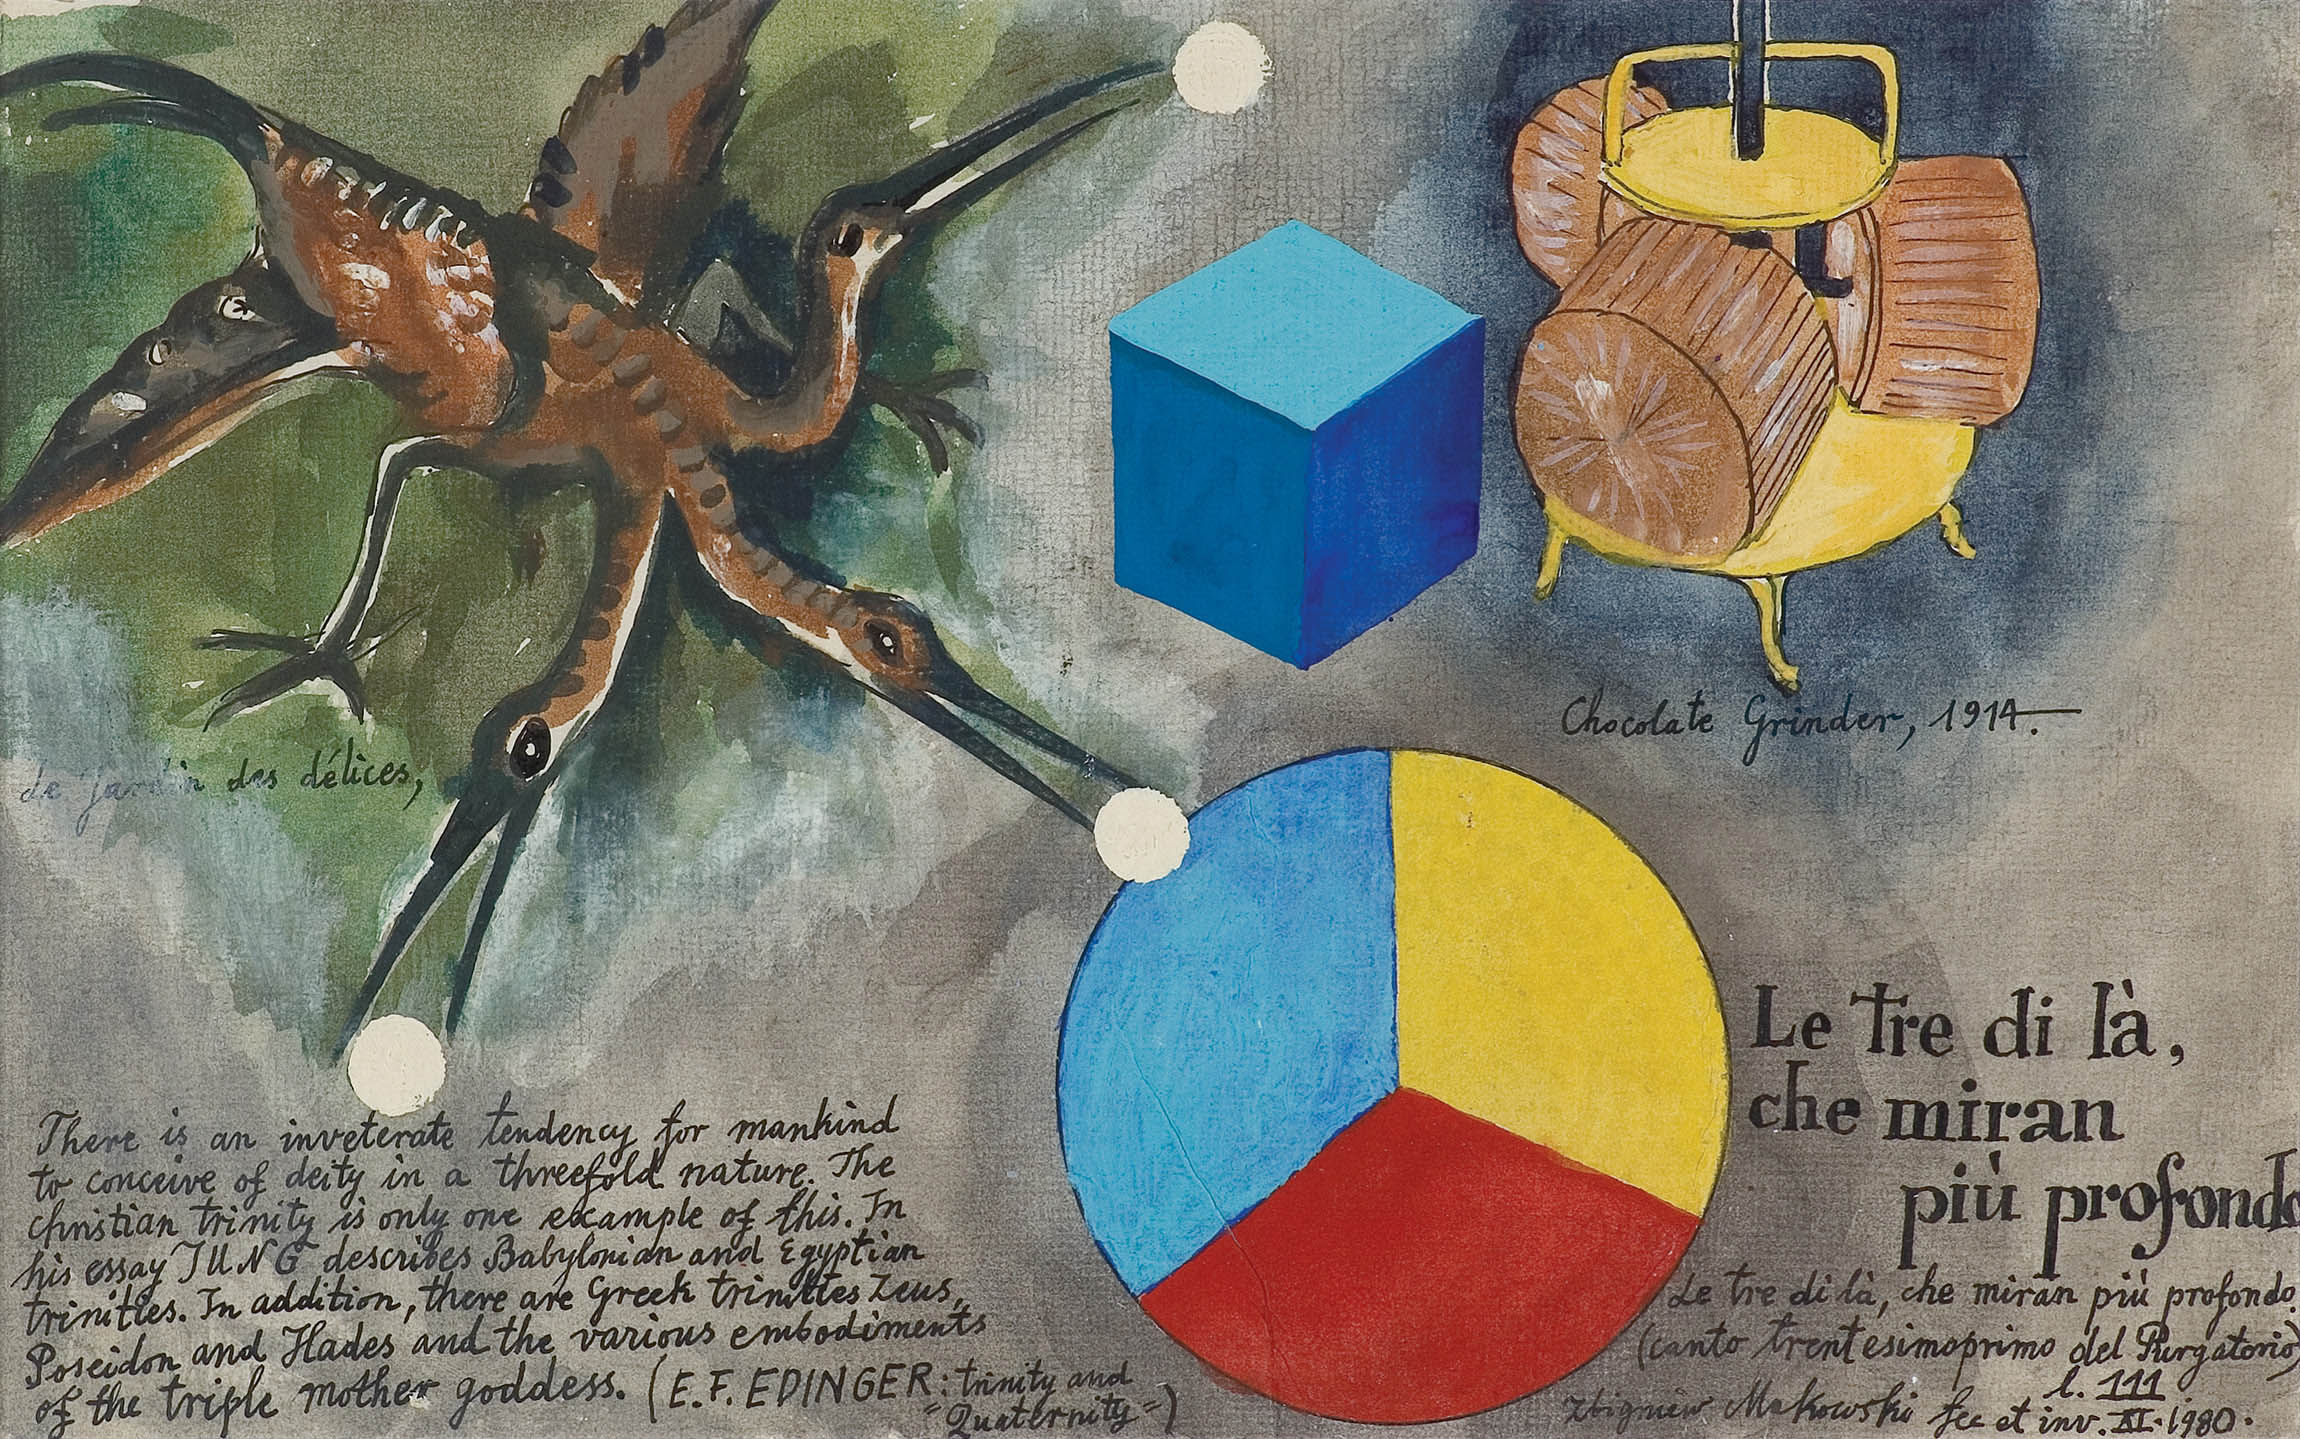 Le jardin des délices,
Chocolate Grinder, 1914.
Le tre di là,
che miran
più profondo
There is an inveterate tendency for mankind
to conceive of deity in a threefold nature. The
christian trinity is only one example of this. In
his essay JUNG describes Babylonian and Egyptian
trinities. In addition, there are Greek trinittes Zeus,
Poseidon and Hades and the various embodiments
of the triple mother goddess. (E.F. EDINGER: trinity and
"Quaternity")
Le tre di là, che miran più profondo.
(canto trentesimoprimo del Purgatorio)
l. 111
Zbigniew Makowski fec et inv. XI. 1980.